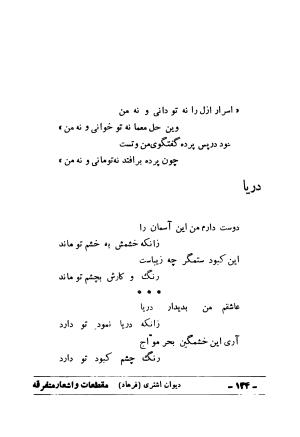 « اسرار ازل را نه تو دانی و نه من
وین حل معما نه تو خوانی و نه من »
بود درپس پرده گفتگوی من وتست
چون پرده برافتد نه تومانی و نه من »
دریا
دوست دارم من این آسمان را
زانکه خشمش به خشم تو ماند
این کبود ستمگر چه زیباست
رنگ و کارش بچشم تو ماند
* * *
عاشقم من بدیدار دریا
زانکه دریا نمود تو دارد
آری این خشمگین بحر موّاج
رنگ چشم کبود تو دارد
- ۱۴۴ - دیوان اشتری (فرهاد) مقطعات و اشعار متفرقه